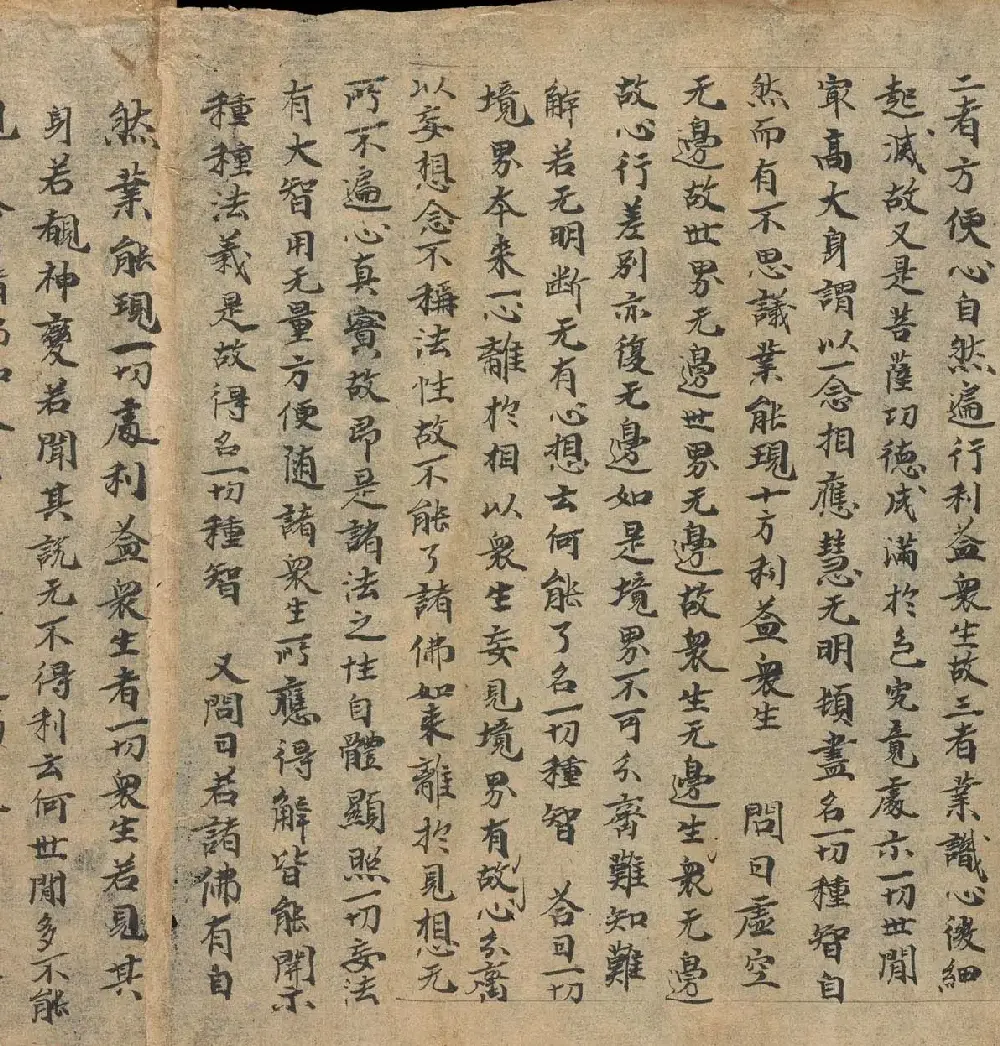 二者方便心自然遍行利益衆生故三者業識心微細
起滅故又是菩薩功德成滿於色究竟處示一切世間
冣高大身謂以一念相應慧无明頓盡名一切種智自
然而有不思議業能現十方利益衆生 問曰虛空
无邊故世界无邊世界无邊故衆生无邊生衆无邊
故心行差別亦復无邊如是境界不可分齊難知難
解若无明断无有心想云何能了名一切種智 荅曰一切
境界本来一心離於相以衆生妄見境界有故心分齊
以妄想念不稱法性故不能了諸佛如来離於見想无
所不遍心真實故即是諸法之性自體顯照一切妄法
有大智用无量方便随諸衆生所應得解皆能開示
種種法義是故得名一切種智 又問曰若諸佛有自
然業能現一切處利益衆生者一切衆生若見其
身若覩神變若聞其說无不得利云何世間多不能